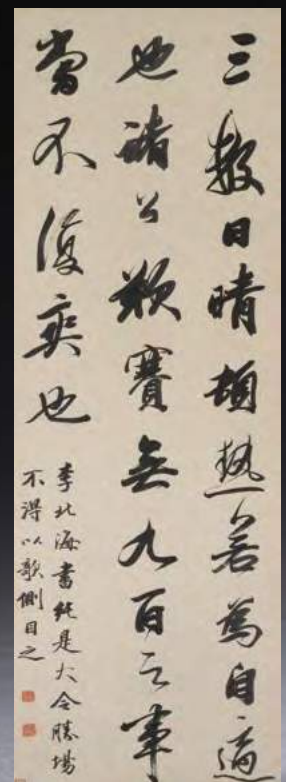 三数日晴頓熱若為自適
也諸公欲賽無九百之事
當不復爽也
李北海書純是大令勝場
不得以欹側目之